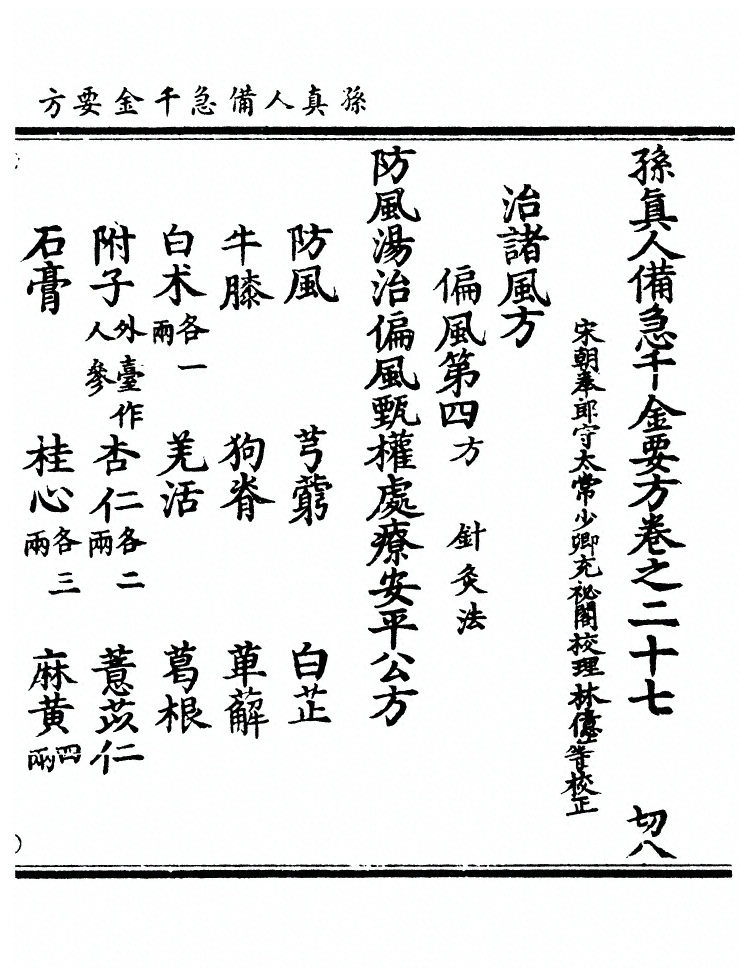 孫真人備急千金要方
孫眞人備急千金要方卷之二十七 切八
宋朝奉郎守太常少卿充祕閣校理林億等校正
治諸風方
偏風第四方 針灸法
防風湯治偏風甄權處療安平公方
防風 芎藭 白芷
牛膝 狗脊 萆薢
白术各一兩 羌活 葛根
附子外臺作人參 杏仁各二兩 薏苡仁
石膏 桂心各三兩 麻黄四兩